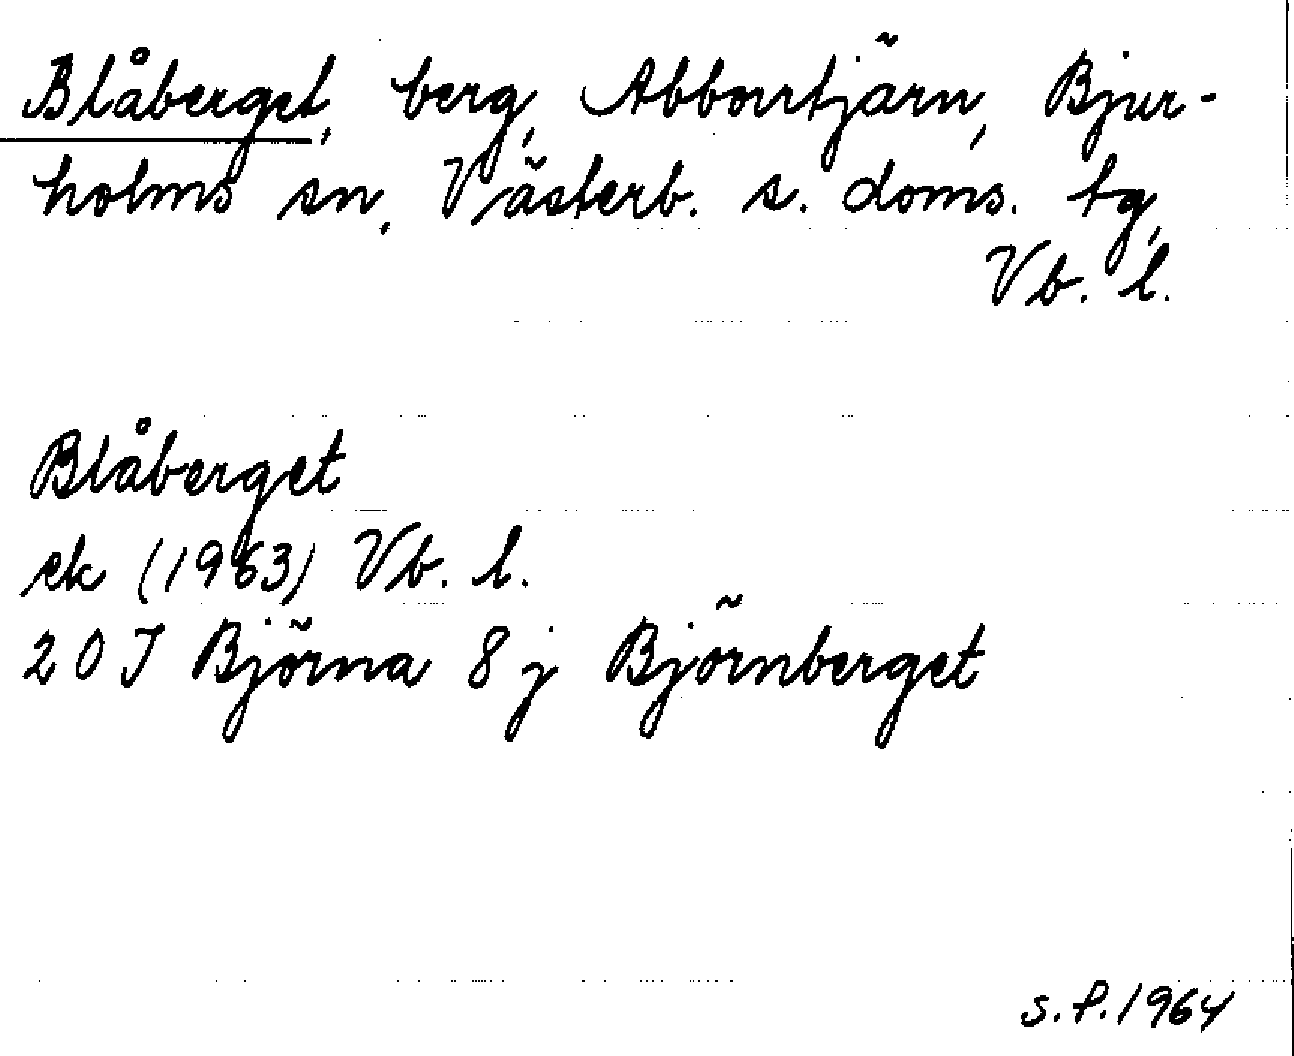 Blåberget, berg, Abborrtjärn, Bjur-
holms sn, Västerb. s. doms. tg,
Vb. l.
Blåberget
ek (1963) Vb. l.
20 J Björna 8 j Björnberget
S.P. 1964